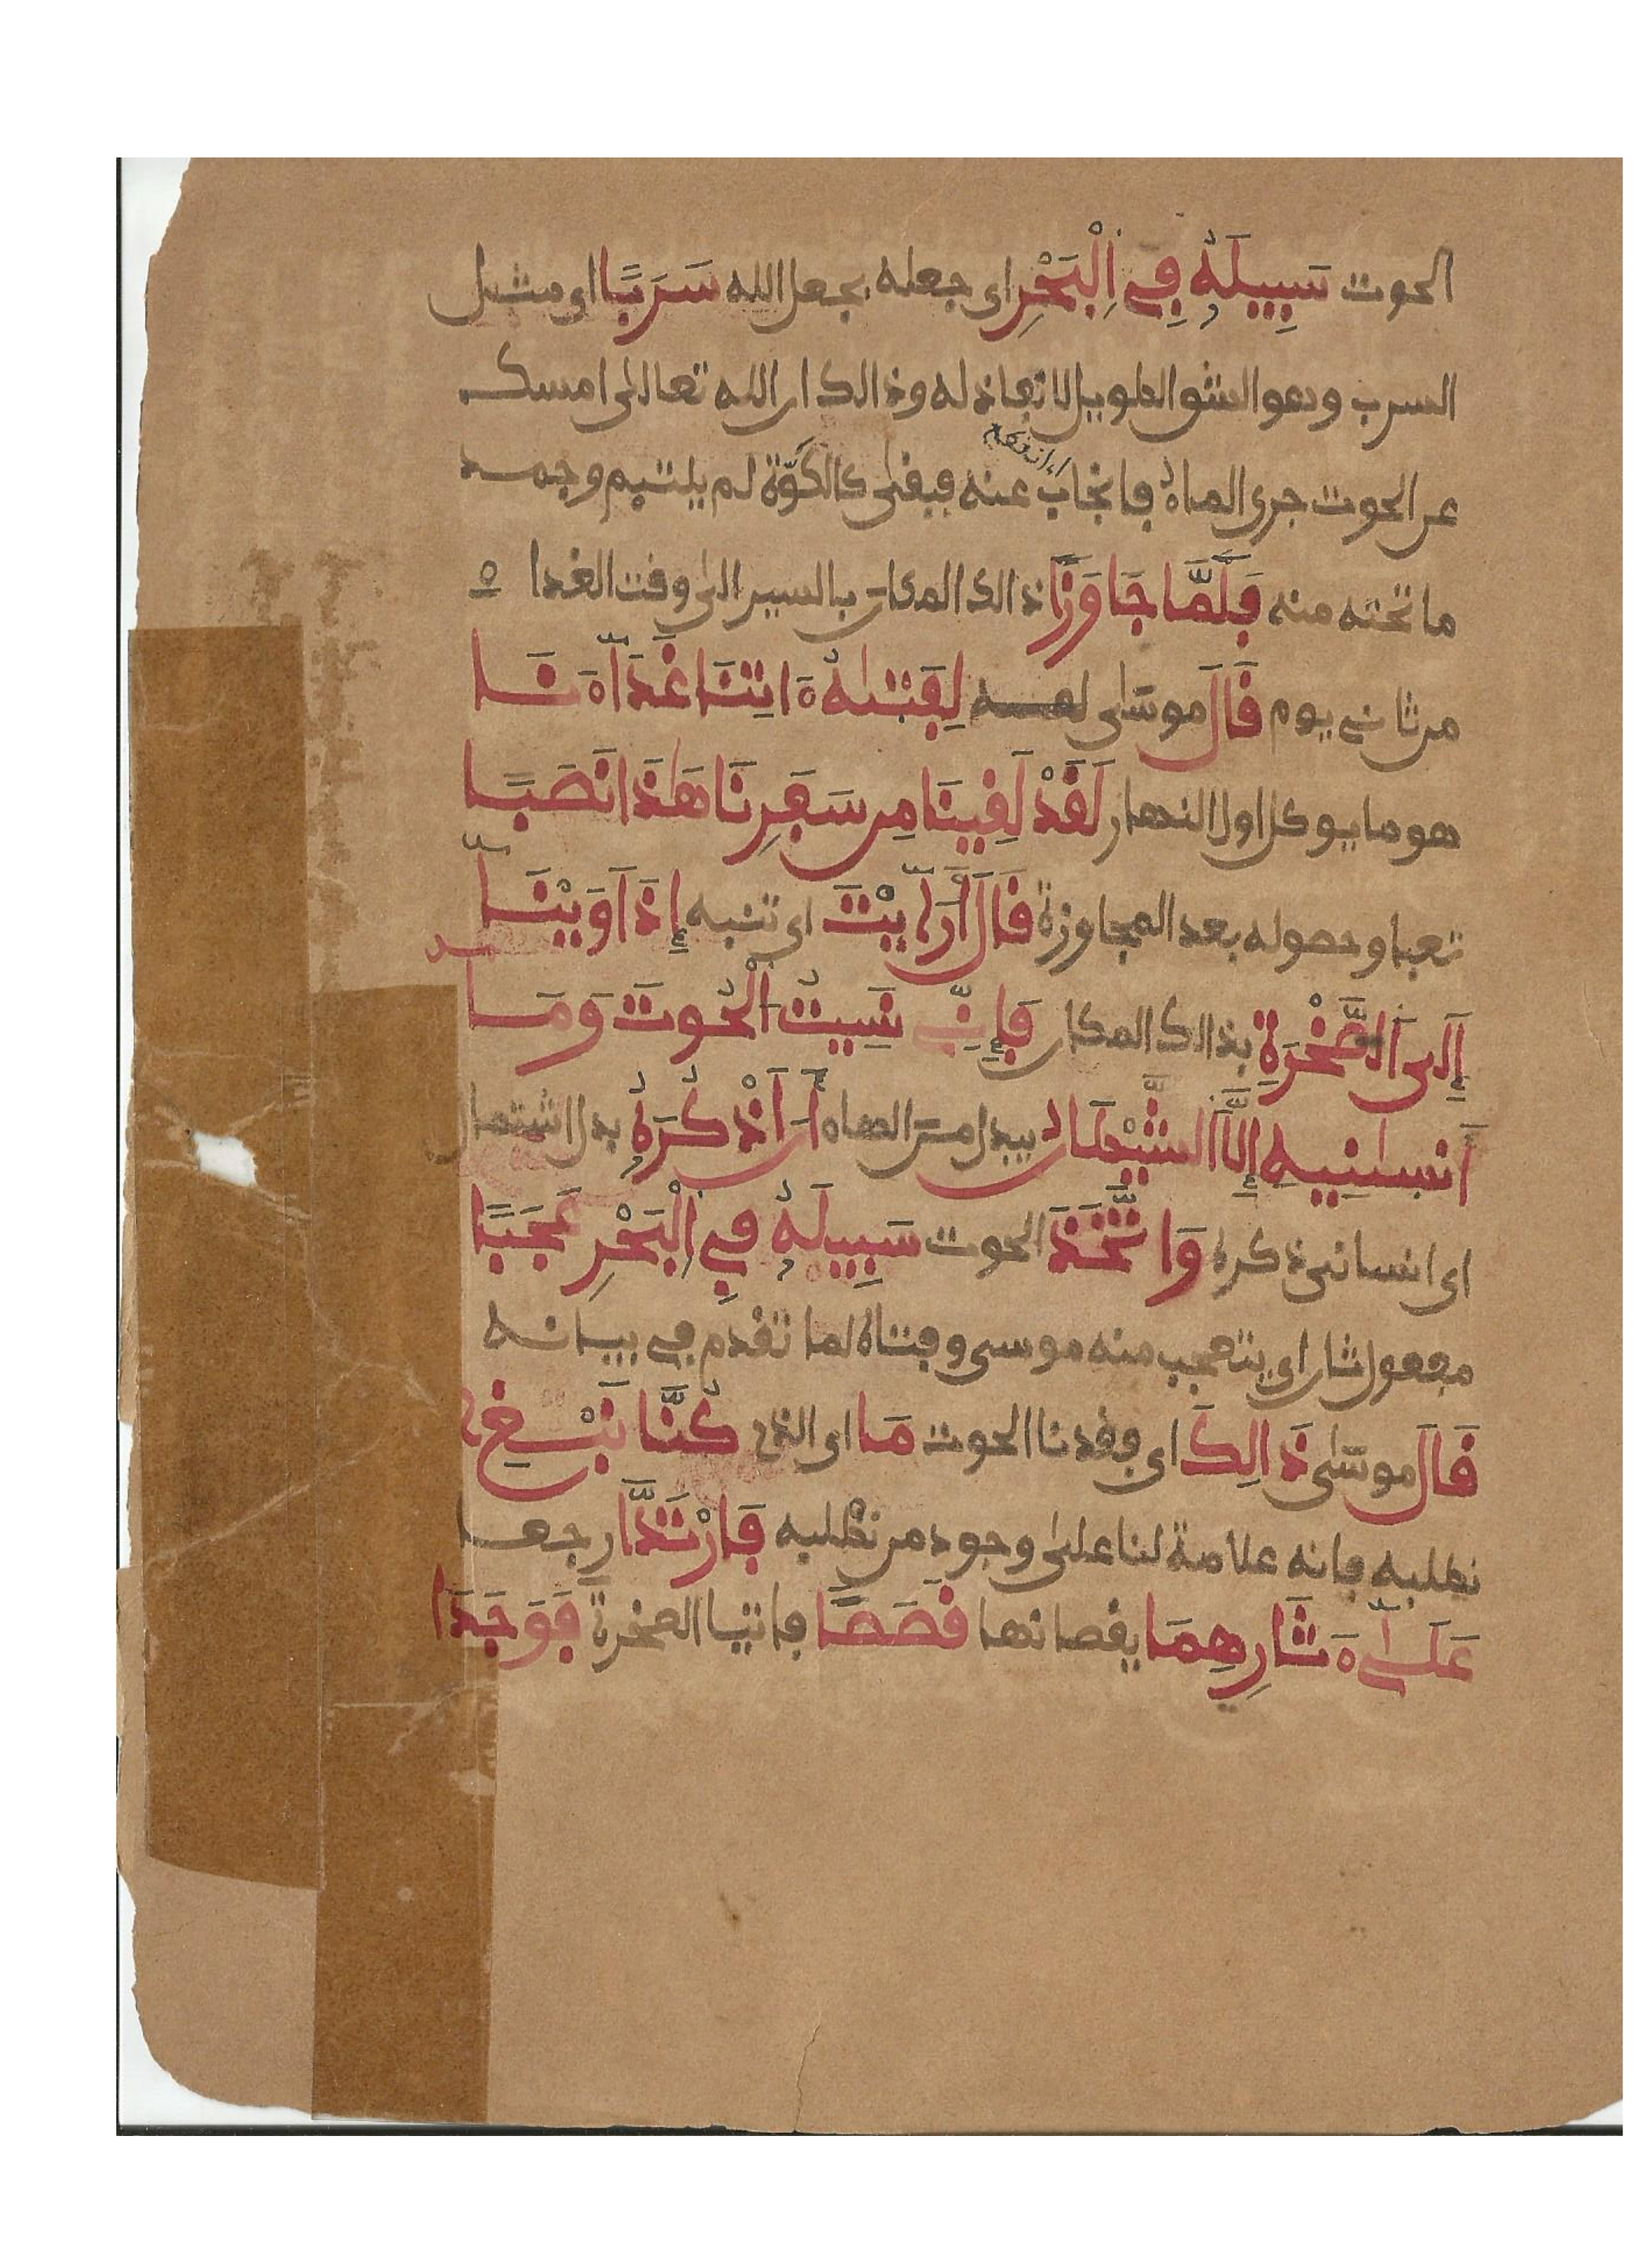 الحوت سَبِيلَهُۥ فِے اِ۬لْبَحْرِ اى جعله بجعل الله سَرَبًا اى مثل
السرب وهو الشق الطويل لا نفاذ له وذالك ان الله تعالى امسك
عن الحوت جرى الماء فانجاب عنه فبقى كالكَوَّة لم يلتيم وجمد
ما تحته منه فَلَمَّا جَاوَزَا ذالك المكان بالسير الى وقت الغدا
من ثانى يوم قَالَ موسَىٰ لِفَتَىٰهُ ءَاتِنَا غَدَآءَنَا
هو ما يوكل اول النهار لَقَدْ لَقِينَا مِن سَفَرِنَا هَٰذَا نَصَبًا
تعبا وحصوله بعد المجاوزة قَالَ أَرَآيْتَ اى تنبه إِذَ اَوَيْنَآ
إِلَى اَ۬لصَّخْرَةِ بذالك المكان فَإِنِّے نَسِيتُ اُ۬لْحُوتَ وَمَآ
أَنسَىٰنِيهِ إِلَّا اَ۬لشَّيْطَٰنُ يبدل من الهاء أَنَ اَذْكُرَهُۥ بدل اشتمال
اى انسانى ذكره وَاتَّخَذَ الحوت سَبِيلَهُۥ فِے اِ۬لْبَحْرِ عَجَبًا
مفعول ثان اى يتعجب منه موسى وفتاه لما تقدم فى بيانه
قَالَ موسَىٰ ذَالِكَ اى فقدنا الحوت مَا اى الذى كُنَّا نَبْغِے
نطلبه فانه علامة لنا على وجودِ من نطْلبه فَارْتَدَّا رجعا
عَلَىٰٓ ءَاثَارِهِمَا يقصانها قَصَصًا فاتيا الصخرة فَوَجَدَا